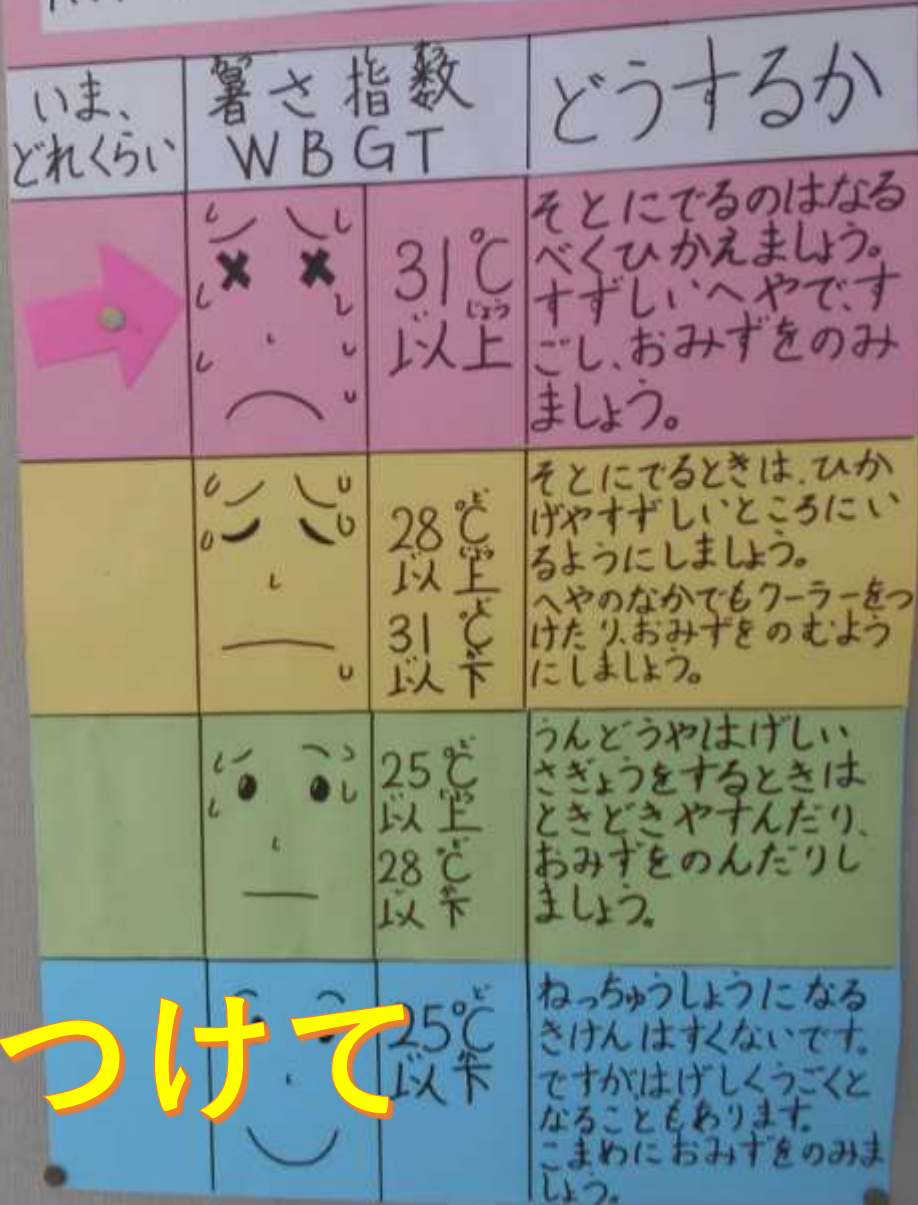 いま、
どれくらい
暑さ指数
WBGT
どうするか
31℃
以上
そとにでるのはなる
べくひかえましょう。
すずしいへやで、す
ごし、おみずをのみ
ましょう。
28℃
以上
31℃
以下
そとにでるときは、ひか
げやすずしいところにい
るようにしましょう。
へやのなかでもクーラーをつ
けたり、おみずをのむよう
にしましょう。
25℃
以上
28℃
以下
うんどうやはげしい
さぎょうをするときは
ときどきやすんだり、
おみずをのんだりし
ましょう。
25℃
以下
ねっちゅうしょうになる
きけんはすくないです。
ですが、はげしくうごくと
なることもあります。
こまめにおみずをのみま
しょう。
つけて